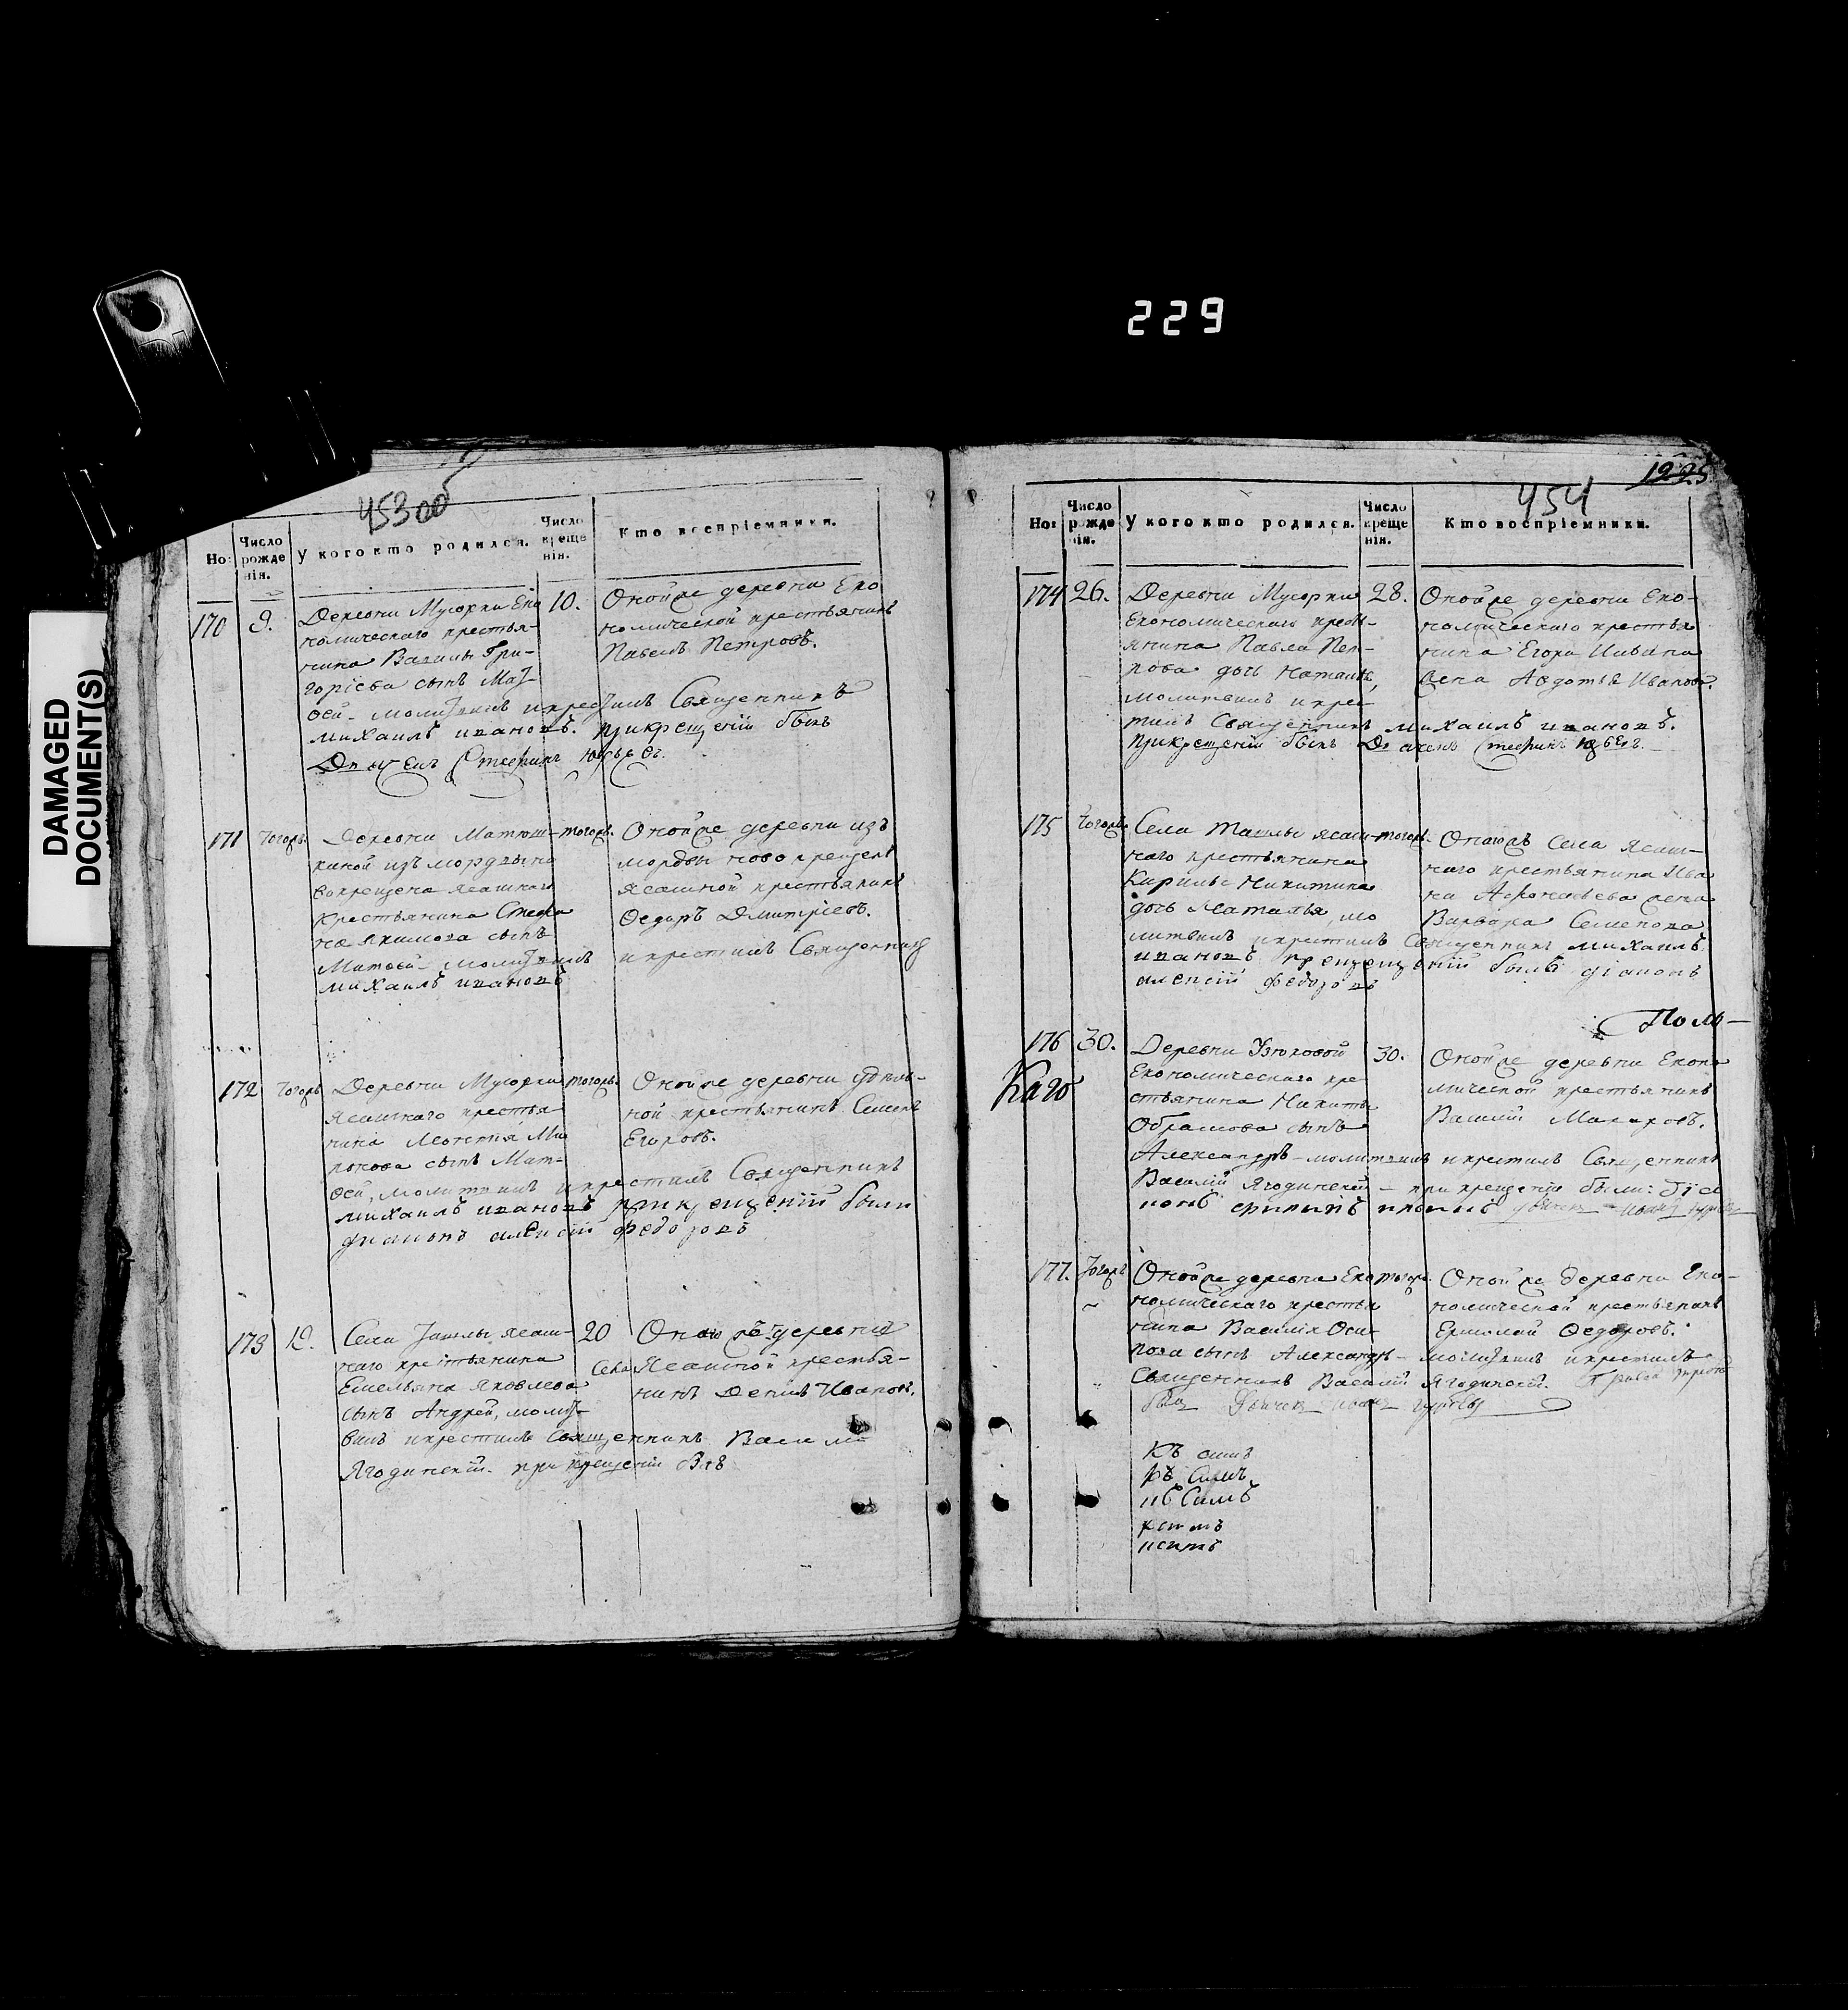 229
DAMAGED
DOCUMENT(S)
453об
Но:
Число рожде нія.
У кого кто родился.
Число креще нія.
Кто воспріемники.
170
9.
Деревни Мусорки Еко
номическаго крестья-
нина Василья Гри-
горіева сынъ Мат-
ѳей - молитвилъ икрестилъ Священникъ
михаилъ ивановъ. прикрещеніи былъ
Дьячекъ Стефанъ
10.
Оной же деревни Еко
номической крестьянинъ
Павелъ Петровъ.
171
тогожъ
Деревни Матюш-
киной изъ мордвы но
вокрещена ясашнаго
крестьянина Степа
на Якимова сынъ
Матвѣй - молитвилъ икрестилъ Священникъ
михаилъ ивановъ
тогожъ.
Оной же деревни изъ
мордвы ново крещенъ
ясашной крестьянинъ
Ѳедоръ Дмитріевъ.
172
тогожъ
Деревни Мусорки
ясашнаго крестья-
нина Леонтія Ми
ронова сынъ Мат-
ѳей, молитвилъ икрестилъ Священникъ
михаилъ ивановъ прикрещеніи были
диаконъ алексій федоровъ
тогожъ.
Оной же деревни удѣль-
ной крестьянинъ Семенъ
Егоровъ.
173
19.
Села Ташлы ясаш-
наго крестьянина
Емельяна Яковлева
сынъ Андрей, молит-
вилъ икрестилъ Священникъ Васили
Ягодинскій. при крещеніи
20
Села
деревни
Ясашной крестья-
нинъ Денисъ Ивановъ.
1225
454
Но:
Число рожде нія.
У кого кто родился.
Число креще нія.
Кто воспріемники.
174
26.
Деревни Мусорки
Економическаго кресть-
янина Павла Пет-
рова дочь Наталья,
молитвилъ икрес-
тилъ Священникъ михаилъ ивановъ.
прикрещеніи былъ Дьячекъ Стефанъ
28.
Оной же деревни Еко-
номическаго крестья
нина Егора Иванова
жена Авдотья Иванова.
175
тогожъ.
Села Ташлы ясаш-
наго крестьянина
Кирилы Никитина
дочь Наталья, мо
литвилъ икрестилъ Священникъ михаилъ
ивановъ прикрещеніи былъ діаконъ
алексій федоровъ
тогожъ.
Оногожъ села ясаш-
наго крестьянина Ива
на Афонасьева жена
Варвара Семенова
Помо-
Каго
176
30.
Деревни Узюковой
Економическаго кре-
стьянина Никиты
Обрамова сынъ
Александръ - молитвилъ икрестилъ Священникъ
Василій Ягодинскій - при крещеніи были: Діа
конъ филипъ
30.
Оной же деревни Еконо
мической крестьянинъ
Василій Макаровъ.
177.
тогожъ
Оной же деревни Еко
номическаго крестья
нина Василія Оси-
пова сынъ Александръ - молитвилъ икрестилъ
Священникъ Василій Ягодинскій.
тогожъ.
Оной же деревни Еко-
номической крестьянинъ
Ермолай Ѳедоровъ.